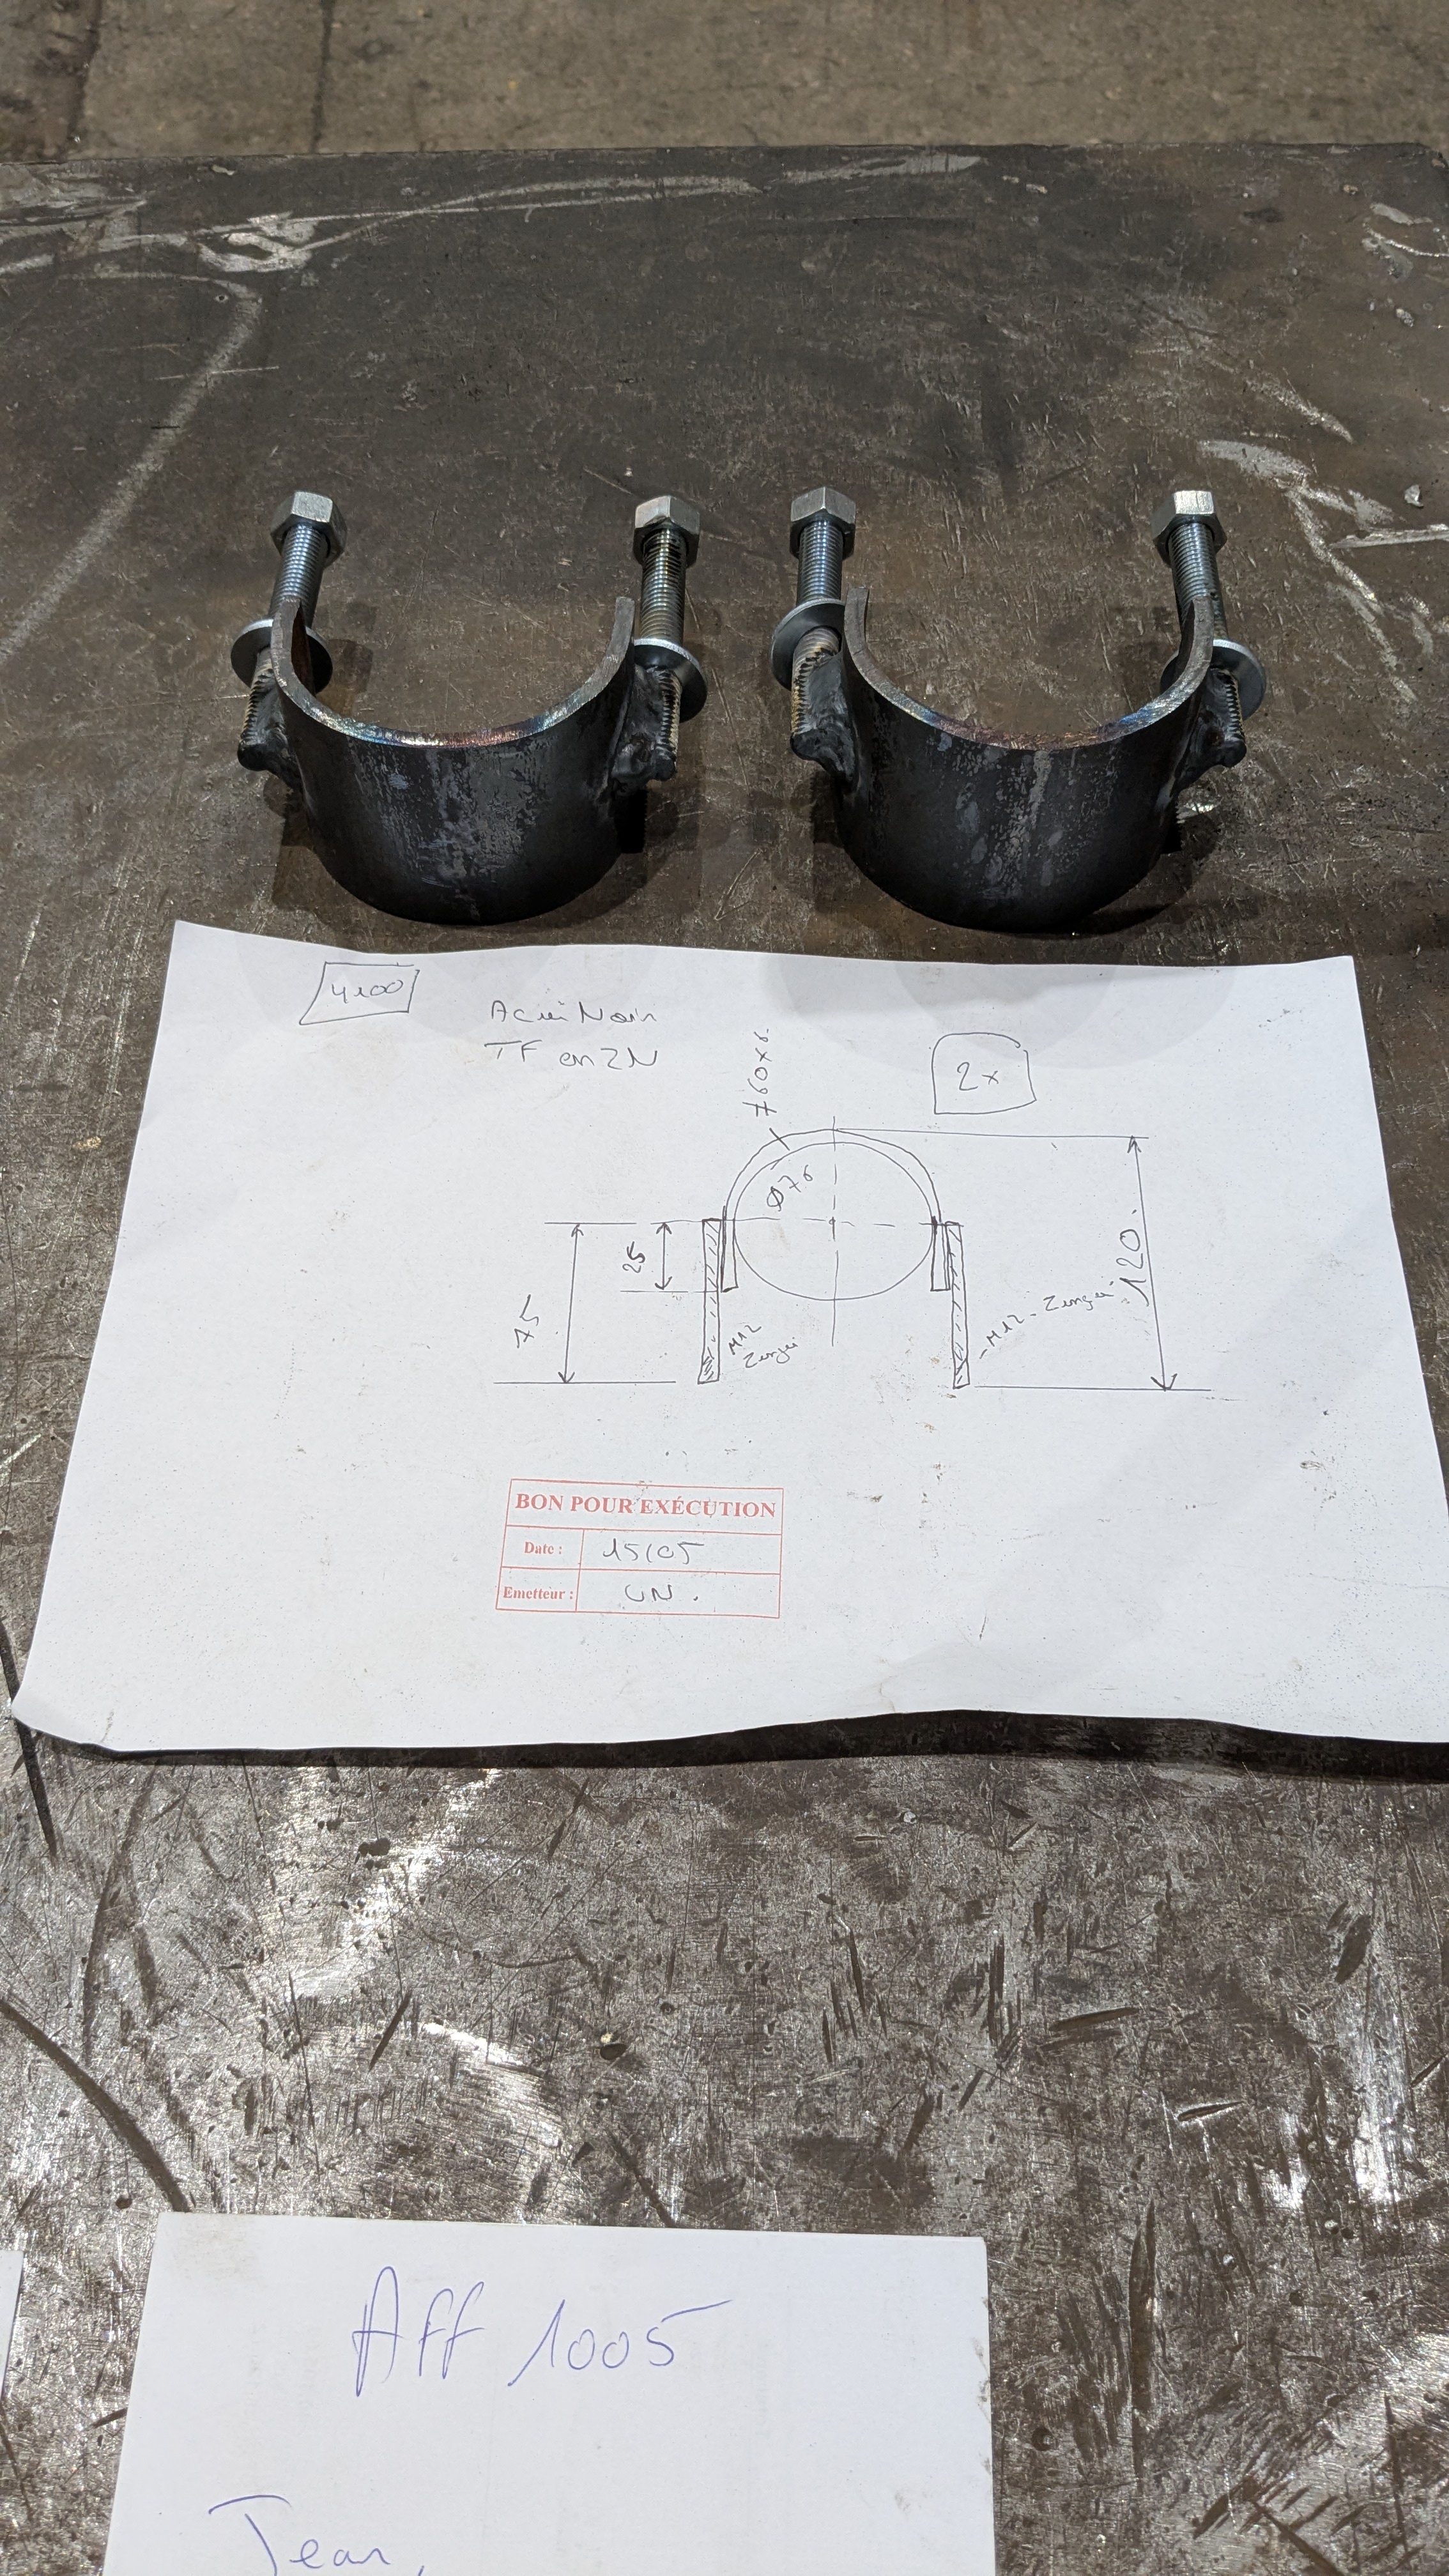 4100
Acier Noir
TF en ZN
2x
Ø76
25
75
120
M12
Zingué
M12 Zingué
BON POUR EXÉCUTION
Date : 15/05
Emetteur :
Aff 1005
Jean,